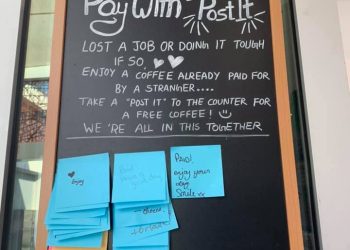 Pay With Post It
LOST A JOB OR DOING IT TOUGH
IF SO,
ENJOY A COFFEE ALREADY PAID FOR
BY A STRANGER....
TAKE A "POST IT" TO THE COUNTER FOR
A FREE COFFEE!
WE'RE ALL IN THIS TOGETHER
Enjoy
PAID!
enjoy your
day
Smile xx